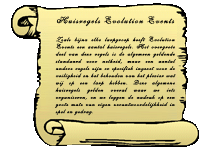 Huisregels Evolution Events
Zoals bijna elke loopgroep heeft Evolution
Events een aantal huisregels. Het overgrote
deel van deze regels is de algemeen geldende
standaard voor netheid, maar een aantal
andere regels zijn er specifiek ingezet voor de
veiligheid en het behouden van het plezier wat
wij op een loop hebben. Deze algemene
huisregels gelden overal waar we iets
organiseren, en we leggen de nadruk op een
grote mate van eigen verantwoordelijkheid in
spel en gedrag.